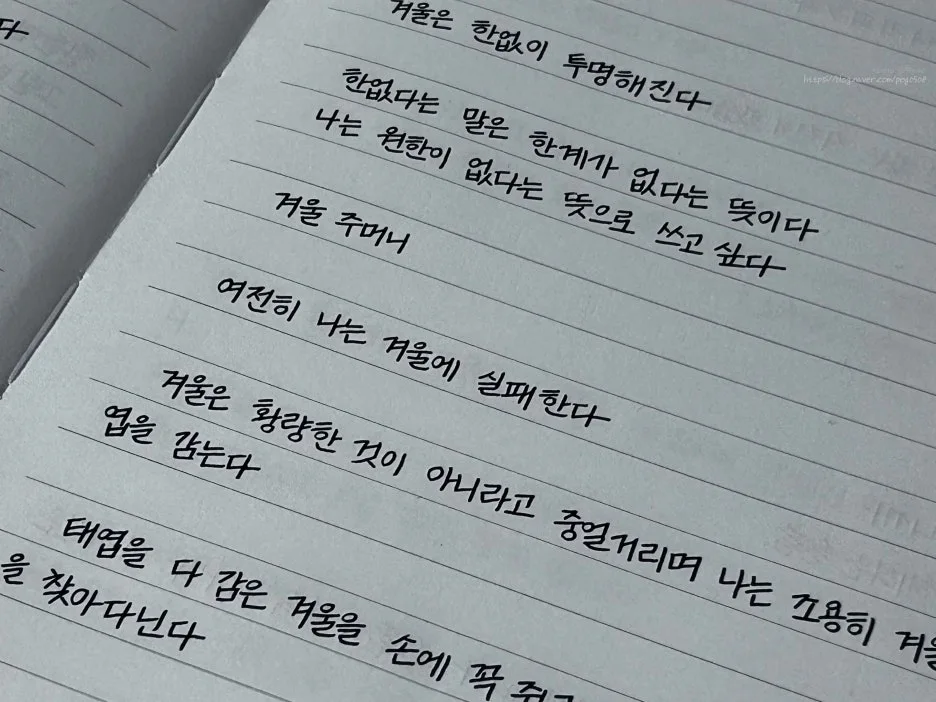 다
겨울은 한없이 투명해진다
https://blog.naver.com/
한없다는 말은 한계가 없다는 뜻이다
나는 원한이 없다는 뜻으로 쓰고 싶다
겨울 주머니
여전히 나는 겨울에 실패한다
겨울은 황량한 것이 아니라고 중얼거리며 나는 조용히 겨울
엽을 감는다
태엽을 다 감은 겨울을 손에 꼭 쥐고
을 찾아다닌다